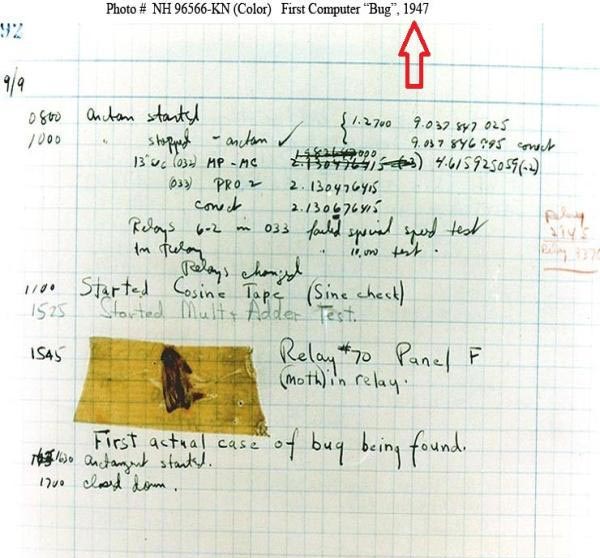 Photo # NH 96566-KN (Color) First Computer “Bug”, 1947
92
9/9
0800 Antan started
1000 " stopped - antan ✓ { 1.2700 9.037 847 025
9.037 846 995 conect
13"uc (032) MP - MC 2.130476415 (-3) 4.615925059(-2)
(033) PRO 2 2.130476415
conect 2.130676415
Relays 6-2 in 033 failed special speed test
In Relay " 10,000 test.
Relay
2145
Relay 3370
Relays changed
1100 Started Cosine Tape (Sine check)
1525 Started Mult + Adder Test.
1545 Relay #70 Panel F
(moth) in relay.
First actual case of bug being found.
1630 antangent started.
1700 closed down.